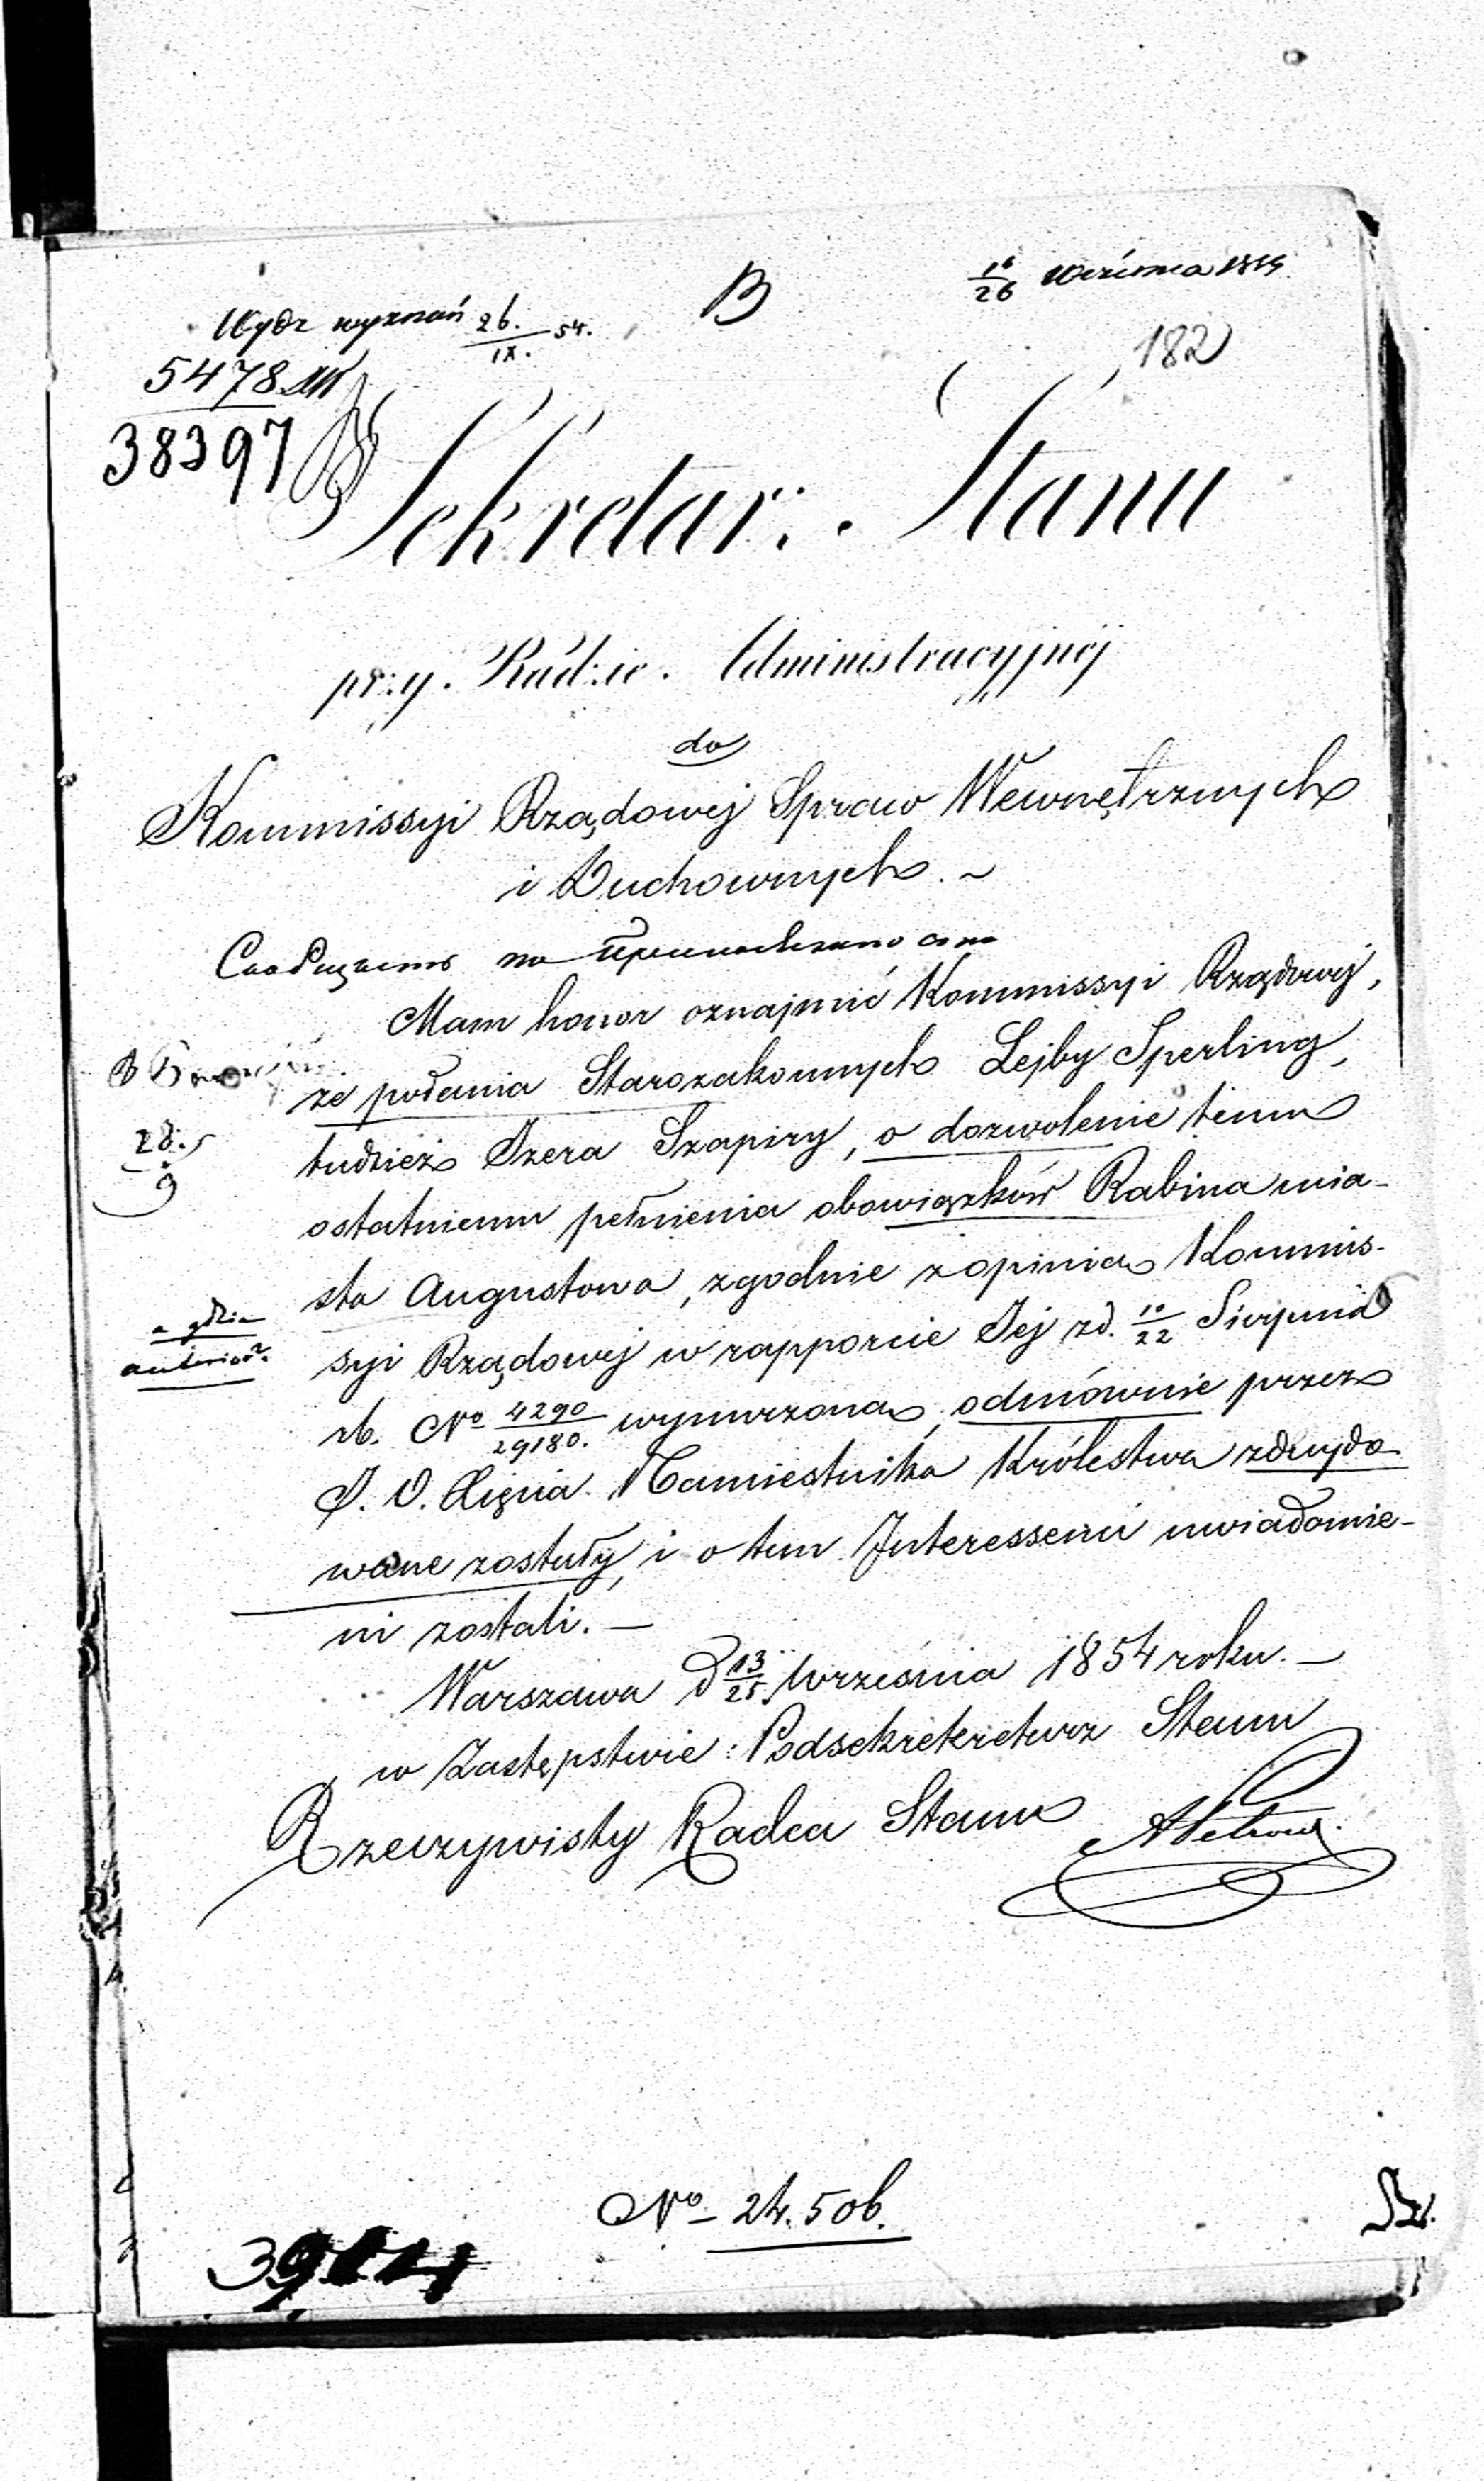 B
16/26 Września 1854
Wydz wyznań 26./IX. 54.
182
5478
38397
Sekretarz Stanu
przy Radzie Administracyjnéj
do
Kommissyi Rządowej Spraw Wewnętrznych
i Duchownych. ~
Mam honor oznajmić Kommissyi Rządowej,
że podania Starozakonnych Lejby Sperling,
28.
9
tudzież Izera Szapiry, o dozwolenie temu
ostatniemu pełnienia obowiązków Rabina mia-
sta Augustowa, zgodnie z opinią Kommis-
a gdzie
syi Rządowej w rapporcie Jej z d. 10/22 Sierpnia
rb. No 4290/29180. wynurzoną, odmównie przez
J. O. Xięcia Namiestnika Królestwa zdecydo-
wane zostały, i o tem Interessenci uwiadomie-
ni zostali. —
Warszawa d 13/25 Września 1854 roku. —
w Zastępstwie: Podsekretarz Stanu
Rzeczywisty Radca Stanu
No 24.506.